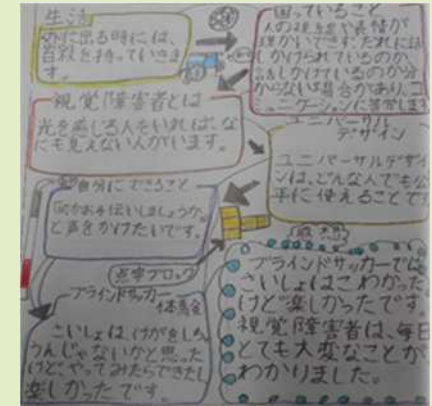 生活
外に出る時には、
白杖を持っていきま
す。
困っていること
人の視線や表情が
理解できず、だれに話
しかけられているのか、
話しかけているのか分
からない場合があり、コ
ミュニケーションに苦労します
視覚障害者とは
光を感じる人もいれば、な
にも見えない人がいます。
ユニバーサル
デザイン
ユニバーサルデザイ
ンは、どんな人でも公
平に使えることです
自分にできること
何かお手伝いしましょうか。
と声をかけたいです。
点字ブロック
ブラインドサッカー
体験会
さいしょは、けがをしちゃ
うんじゃないかと思った
けどやってみたらできたし
楽しかったです。
感想
ブラインドサッカーでは
さいしょはこわかった
けど楽しかったです。
視覚障害者は、毎日
とても大変なことが
わかりました。